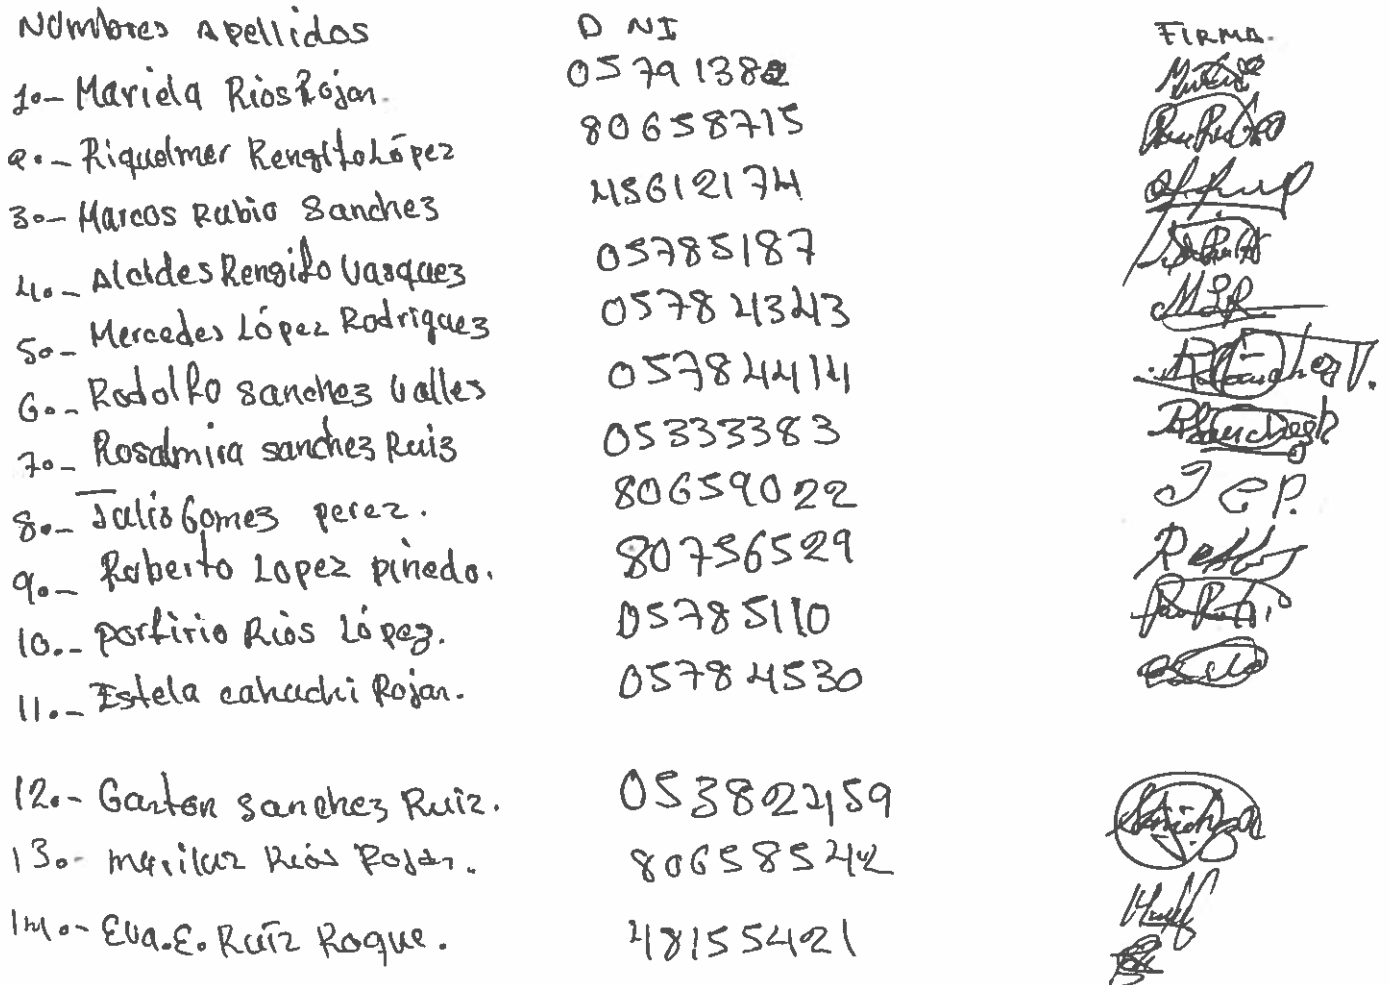 Nombres Apellidos D NI FIRMA.
1.- Mariela Rios Rojas. 05791382
2.- Riquelmer Rengifo López 80658715
3.- Marcos Rubio Sanchez 45612174
4.- Alcides Rengifo Vasquez 05785187
5.- Mercedes López Rodriguez 05784343 MLR.
6.- Rodolfo Sanchez Valles 05784414
7.- Rosalmira sanchez Ruiz 05333383
8.- Julio Gomez perez. 80659022 J G P.
9.- Roberto Lopez pinedo. 80756529
10.- porfirio Rios López. 05785110
11.- Estela cahuachi Rojas. 05784530
12.- Gaston Sanchez Ruiz. 05382259
13.- Mariluz Rios Rojas. 80658542
14.- Eva.E. Ruiz Roque. 48155421